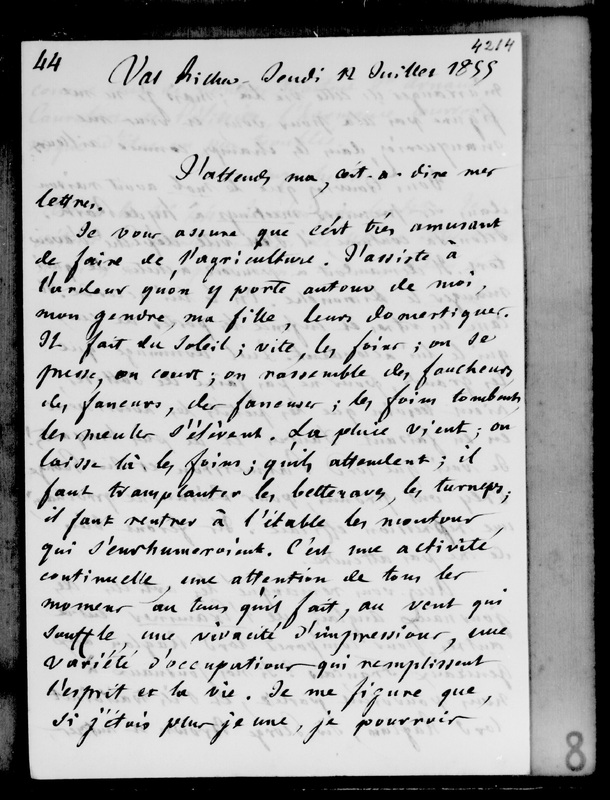 44
4214
Val Richer Jeudi 12 Juillet 1855
J'attends ma, c'est-a-dire mes
lettres.
Je vous assure que c'est très amusant
de faire de l'agriculture. J'assiste à
l'ardeur qu'on y porte autour de moi,
mon gendre, ma fille, leurs domestiques.
Il fait du soleil ; vite, les foins ; on se
presse, on court ; on rassemble des faucheurs
des faneurs, des faneuses ; les foins tombent,
les meules s'élèvent. La pluie vient ; on
laisse là les foins ; qu'ils attendent ; il
faut transplanter les betteraves, les turneps ;
il faut rentrer à l'étable les moutons
qui s'enrhumeroient. C'est une activité
continuelle, une attention de tous les
momens au tems qu'il fait, au vent qui
souffle, une vivacité d'impressions, une
variété d'occupations qui remplissent
l'esprit et la vie. Je me figure que,
si j'étois plus jeune, je pourrois
8